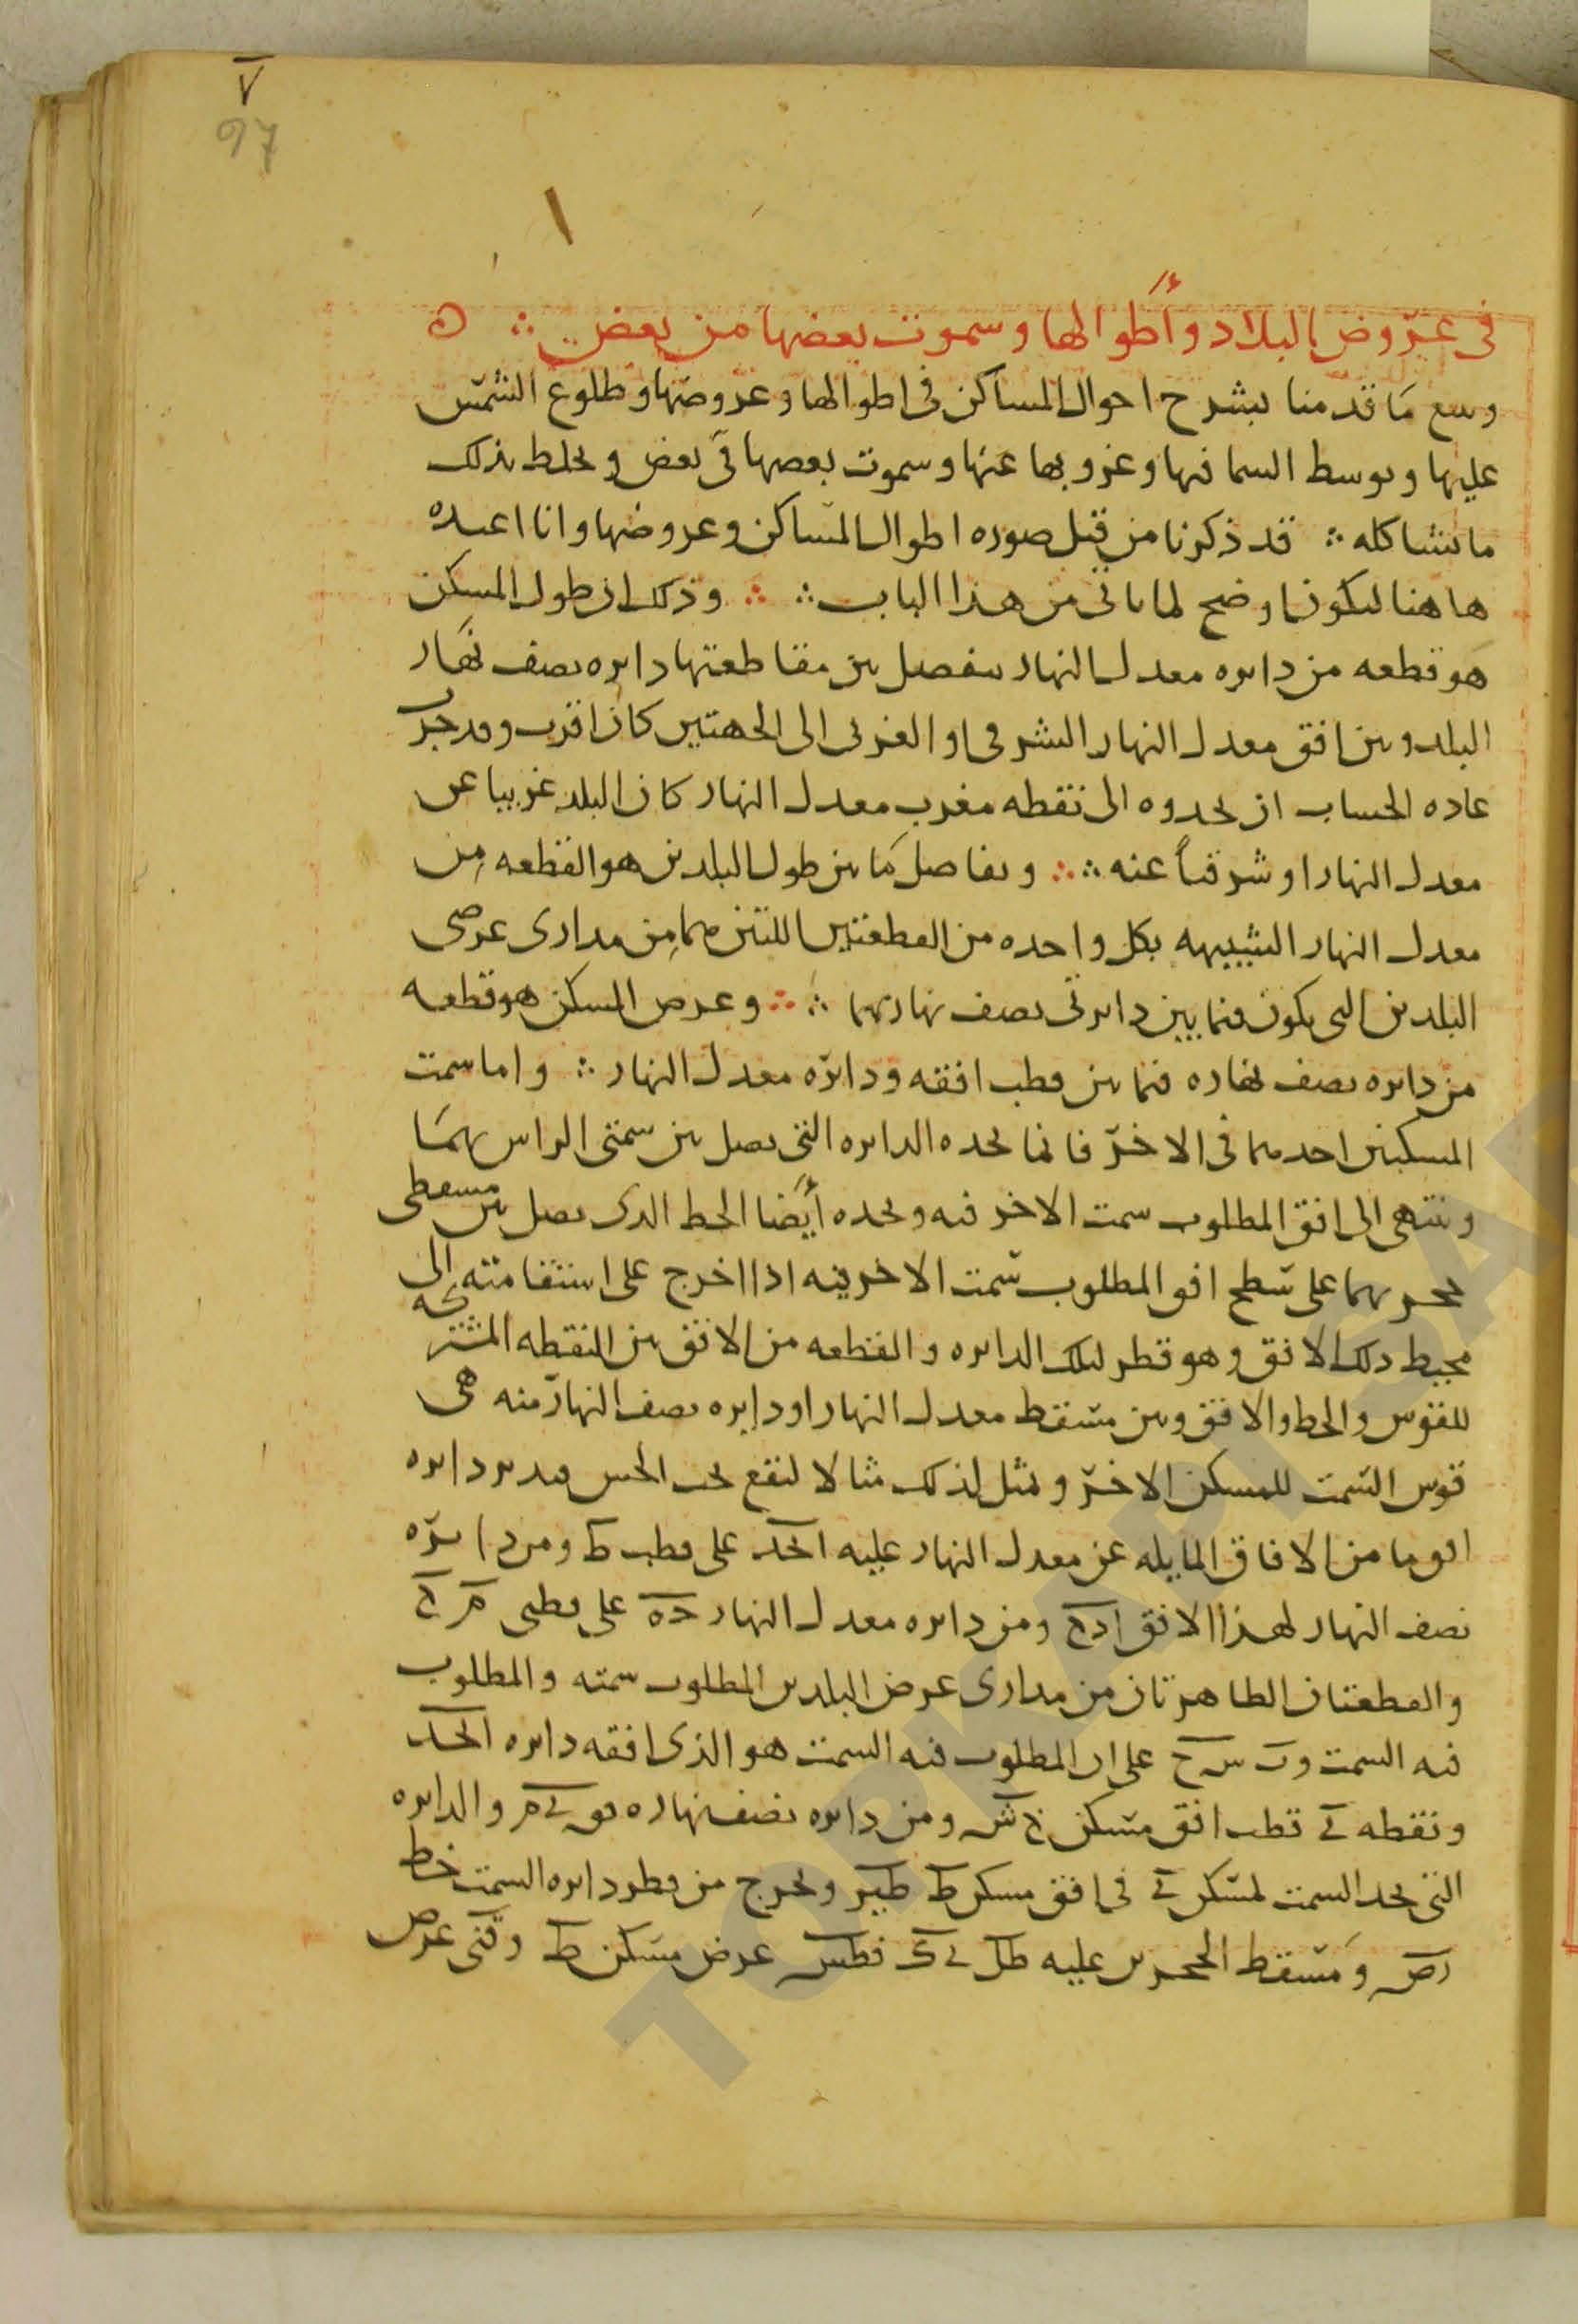 ٧
97
١
في عروض البلاد وأطوالها وسموت بعضها من بعض ه
ما قدمنا بشرح احوال المساكن في اطوالها وعروضها وطلوع الشمس
عليها وتوسط السما فيها وغروبها عنها وسموت بعضها في بعض ونخلط بذلك
ما يشاكله قد ذكرنا من قبل صوره اطوال المساكن وعروضها وانا اعيده
هاهنا ليكون اوضح لما ياتي من هذا الباب وذلك ان طول المسكن
هو قطعه من دايره معدل النهار تنفصل بين مقاطعتها دايره نصف نهار
البلد وبين افق معدل النهار الشرقي او الغربي الى الجهتين كان اقرب وقد جرت
عاده الحساب ان يحدوه الى نقطه مغرب معدل النهار كان البلد غربيا عن
معدل النهار او شرقياً عنه وتفاصل ما بين طول البلدين هو القطعه من
معدل النهار الشبيهه بكل واحده من القطعتين اللتين هما من مدارى عرضى
البلدين التي يكون فيما بين دايرتي نصف نهاريهما وعرض المسكن هو قطعه
من دايره نصف نهاره فيما بين قطب افقه ودائره معدل النهار واما سمت
المسكنين احدهما في الاخر فانما يحده الدايره التي تصل بين سمتى الراس بهما
وتنتهي الى افق المطلوب سمت الاخر فيه ويحده أيضا الخط الذى يصل بين مسقطى
بهما على سطح افق المطلوب سمت الاخر فيه اذا اخرج على استقامته الى
محيط ذلك الافق وهو قطر لتلك الدايره والقطعه من الافق بين النقطه المشتركه
للقوس والخط والافق وبين مسقط معدل النهار او دايره نصف النهار منه هي
قوس السمت للمسكن الاخر ونمثل لذلك مثالا لتقع تحت الحس فندير دايره
افق ما من الافاق المايله عن معدل النهار عليه ا ج على قطب ط ومن دايره
نصف النهار لهذا الافق ومن دايره معدل النهار على قطبى م
والقطعتان الظاهرتان من مدارى عرض البلدين المطلوب سمته والمطلوب
فيه السمت على ان المطلوب فيه السمت هو الذى افقه دايره
ونقطه ى قطب افق مسكن ومن دايره نصف نهاره والدايره
التي تحد السمت لمسكن ى في افق مسكن ط ونخرج من قطر دايره السمت خط
ومسقط عليه عرض مسكن ط عرض